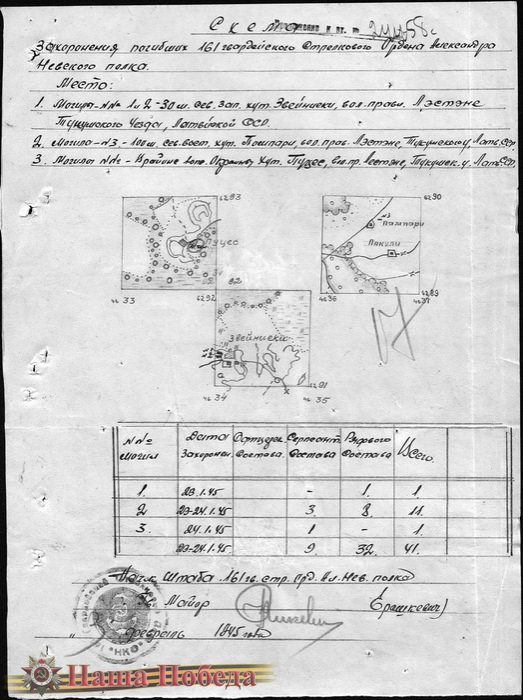 Схема
Захоронения погибших 161 гвардейского Стрелкового Ордена Александра
Невского полка.
Место:
1. Могила-№№ 1 и 2-30 м. сев. зап. хут. Звейниеки, вол. правл. Лэстэне
Тукумского Уезда, Латвийской ССР.
2. Могила-№3-100 м. сев. вост. хут. Пошпари, вол. прав. Лэстэне, Тукумского у. Латв. ССР
3. Могила №1- Крайние Окраину Хут. Пуцес, вол. пр. Лестэне, Тукумск. у. Латв. ССР.
62 93
Пуцес
46 33
62 92
62 90
№3
Пампари
Пакули
46 36
62 89
46 37
92
Звейниеки
46 34
62 91
46 35
17
№№ могил
Дата Захорони.
Офицерск. Состава.
Сержант. Состава
Рядового Состава
Всего.
1. 23.1.45 - 1. 1.
2 23-24.1.45 3 8 11.
3. 24.1.45 1 - 1.
23-24.1.45 9 32. 41.
Нач. Штаба 161 гв. стр. Орд. Ал. Нев. полка
Майор Ерашкевич)
НКО
" Февраль 1945 года
Наша Победа